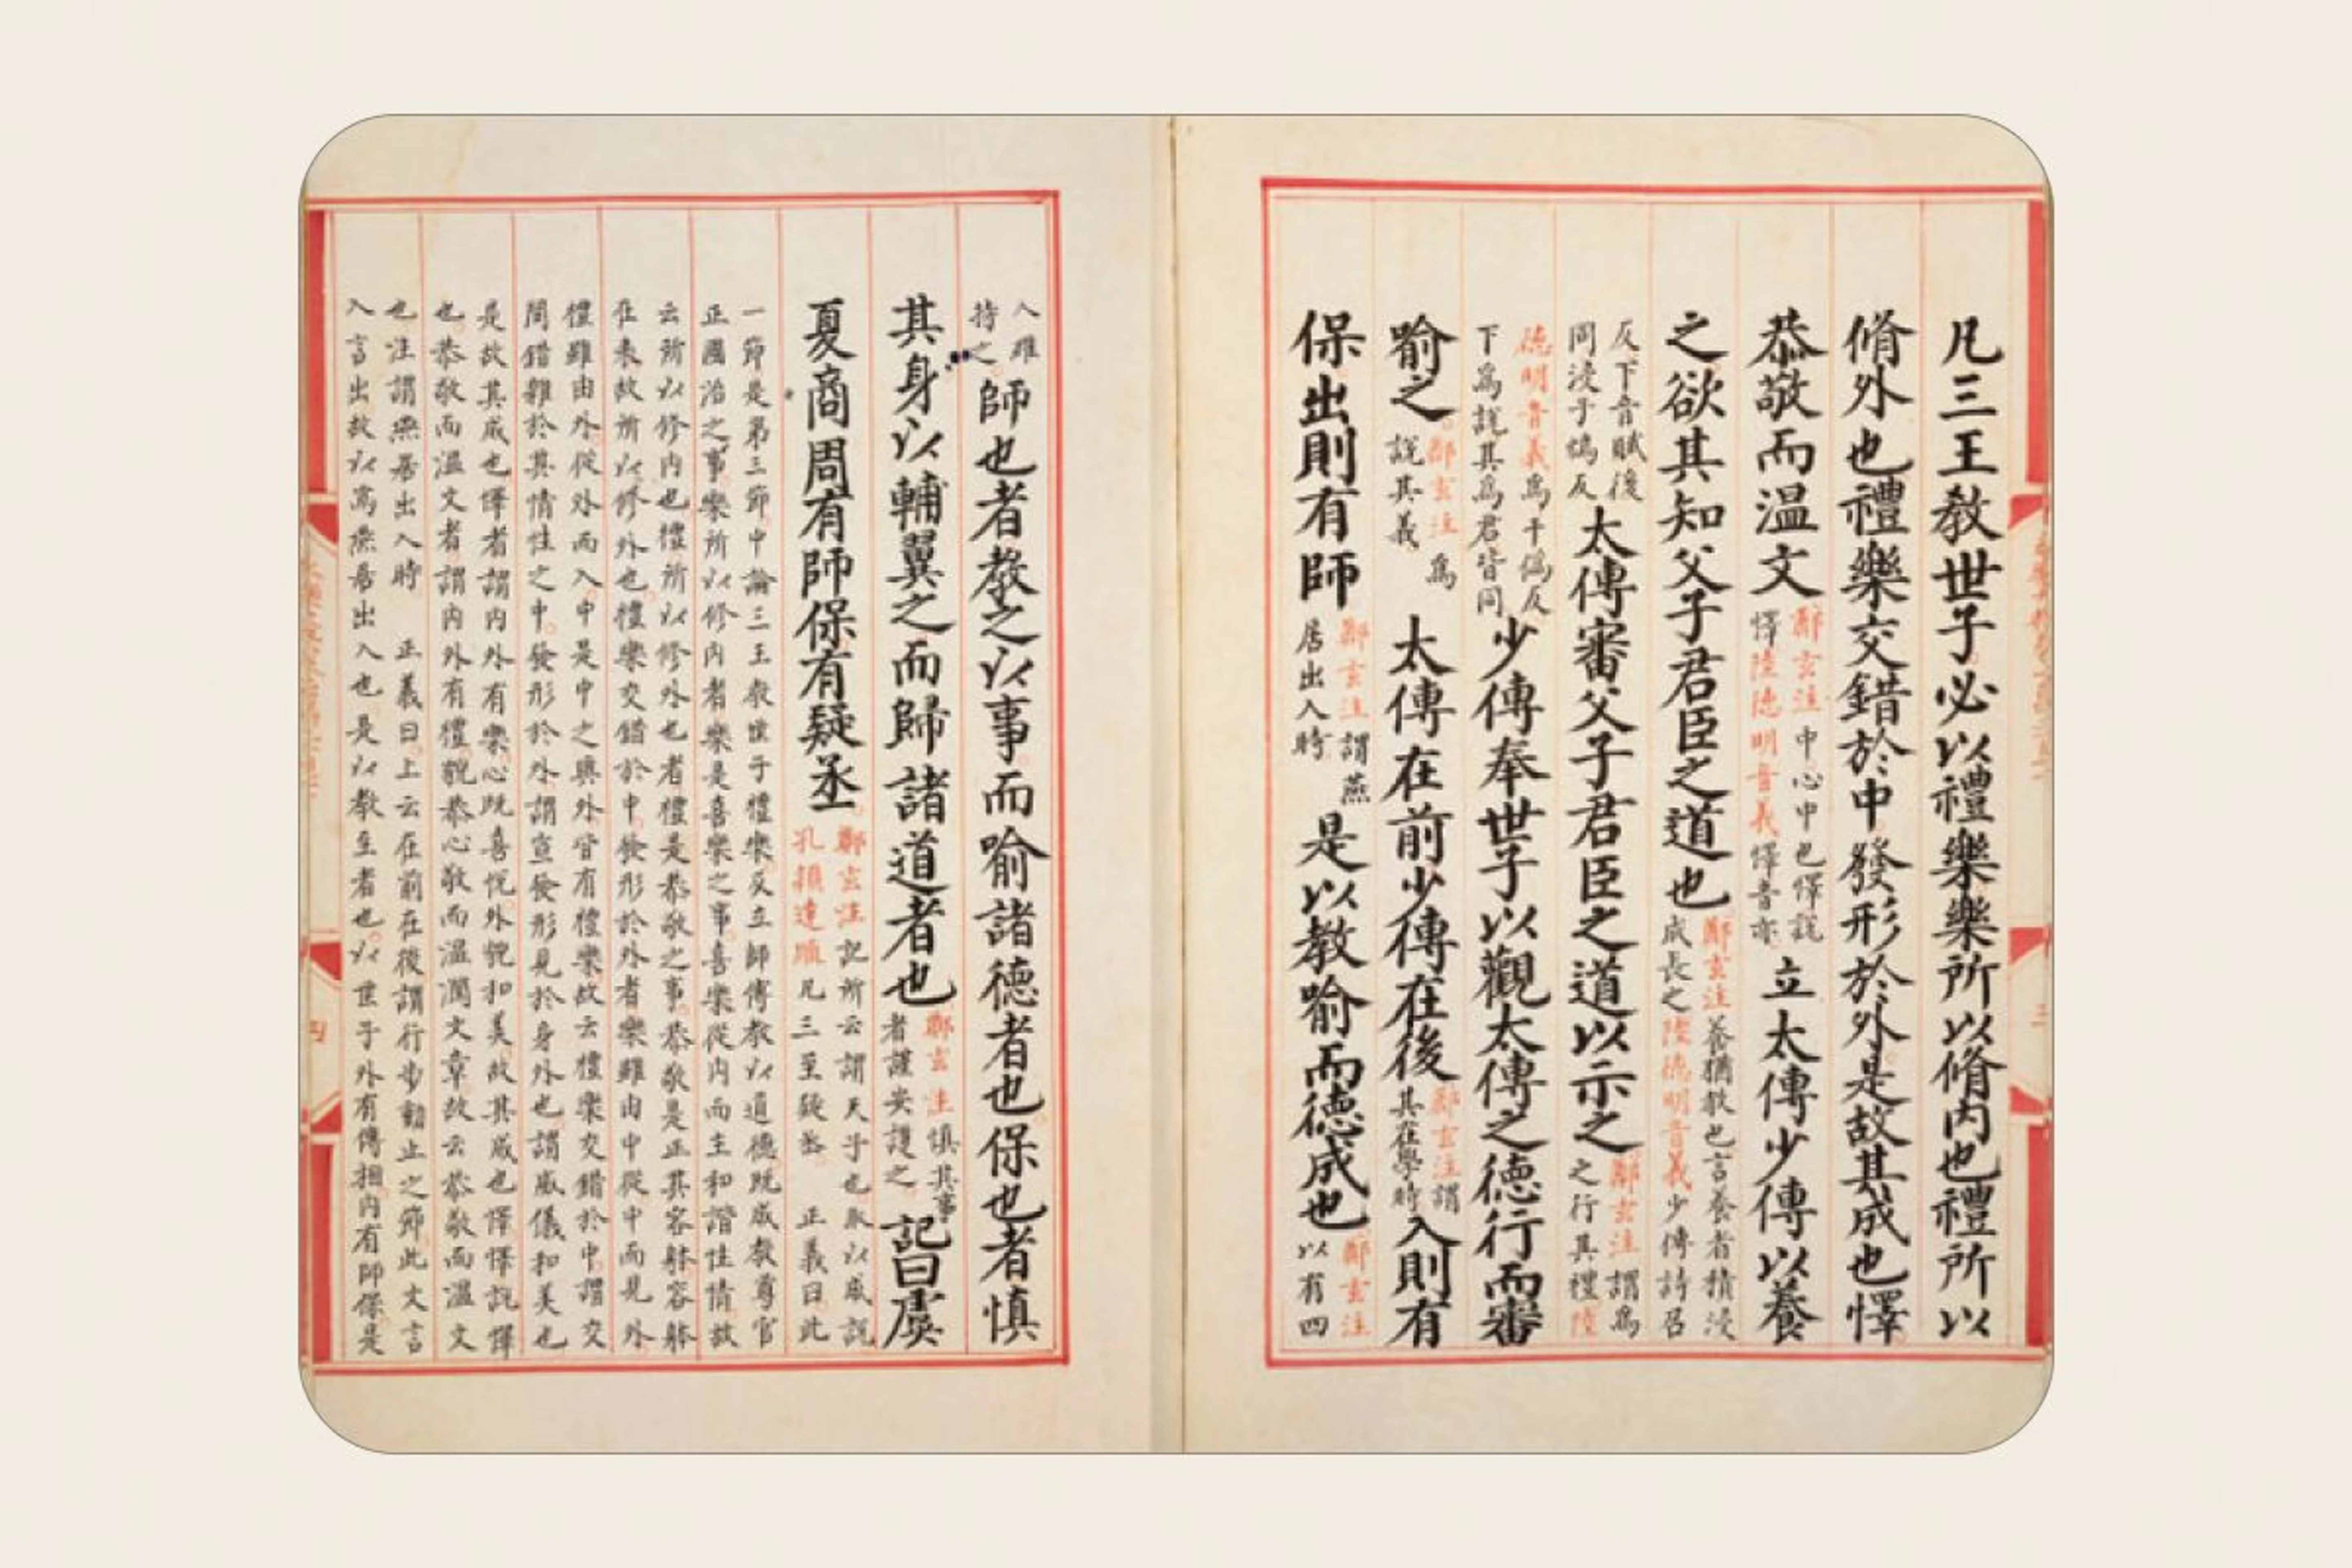 凡三王教世子必以禮樂樂所以脩內也禮所以
脩外也禮樂交錯於中發形於外是故其成也懌
恭敬而溫文鄭玄注中心中也懌說懌陸德明音義懌音亦立太傅少傅以養
之欲其知父子君臣之道也鄭玄注養猶教也言養者積浸成長之陸德明音義少傅詩召
反下音賦後同浸子鴆反太傅審父子君臣之道以示之鄭玄注謂爲之行其禮陸
德明音義爲于僞反下爲說其爲君皆同少傅奉世子以觀太傅之德行而審
喻之鄭玄注爲說其義太傅在前少傅在後鄭玄注謂其在學時入則有
保出則有師鄭玄注謂燕居出入時是以教喻而德成也鄭玄注以有四
人維持之師也者教之以事而喻諸德者也保也者慎
其身以輔翼之而歸諸道者也鄭玄注慎其事者謹安護之記曰虞
夏商周有師保有疑丞鄭玄注記所云謂天子也取以成說孔穎達疏凡三至疑丞 正義曰此
一節是第三節中論三王教世子禮樂及立師傅教以道德既成教尊官
正國治之事樂所以修內者樂是喜樂之事喜樂從內而生和諧性情故
云所以修內也禮所以修外也者禮是恭敬之事恭敬是正其容躰容躰
在表故所以修外也禮樂交錯於中發形於外者樂雖由中從中而見外
禮雖由外從外而入中是中之與外皆有禮樂故云禮樂交錯於中謂交
間錯雜於其情性之中發形於外謂宣發形見於身外也謂威儀和美也
是故其成也懌者謂內外有樂心既喜悅外貌和美故其成也懌懌說懌
也恭敬而溫文者謂內外有禮貌恭心敬而溫潤文章故云恭敬而溫文
也注謂燕居出入時 正義曰上云在前在後謂行步動止之節此文言
入言出故以爲燕居出入也是以教至者也以世子外有傅相內有師保是